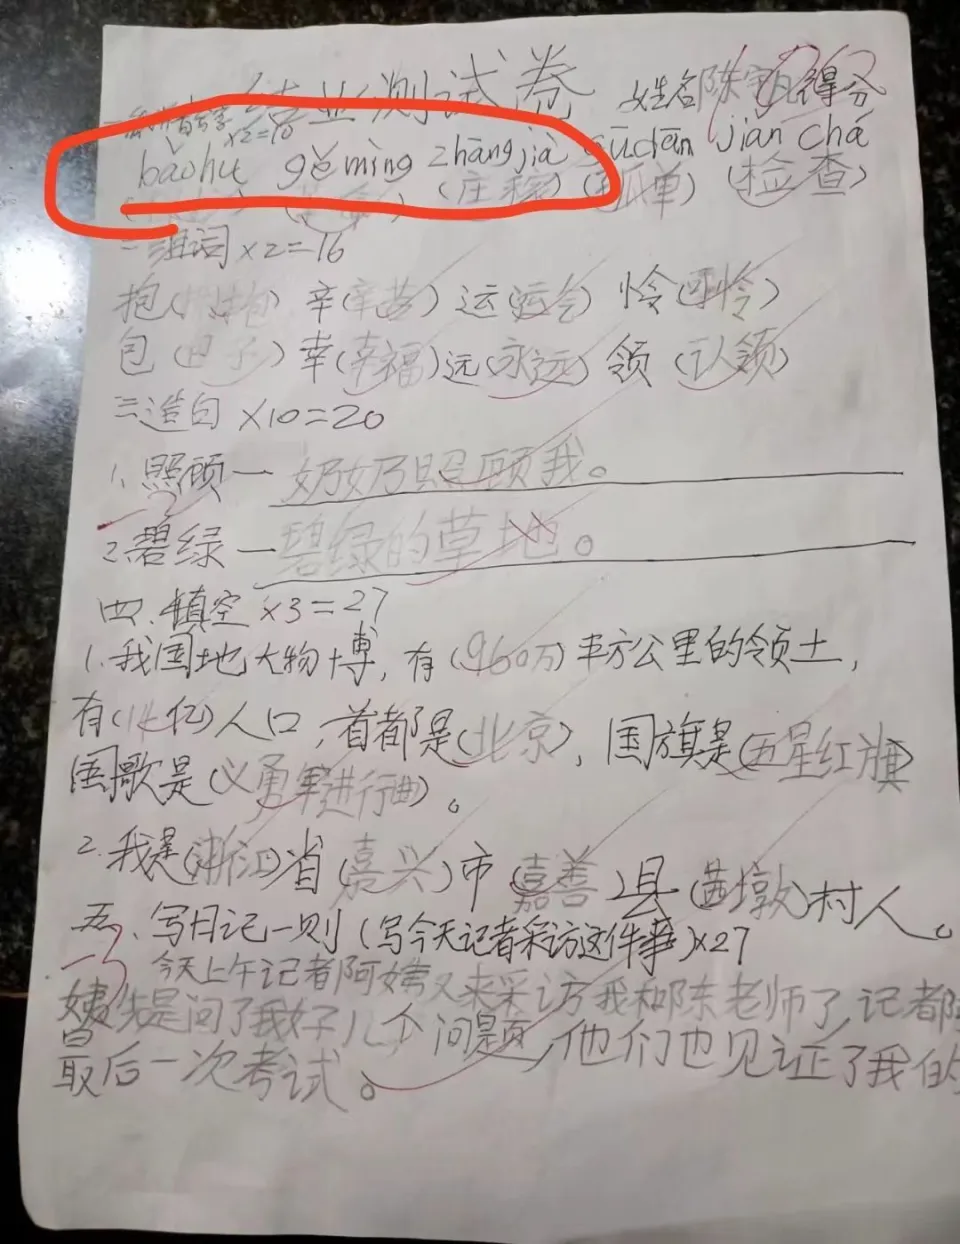 结业测试卷 姓名陈 得分
一. ×2=10
bǎohù gěmìng zhāngjià gūdān jiǎn chá
(庄稼) (孤单) (检查)
二组词 ×2=16
抱( 抱) 辛(辛苦) 运(运会) 怜(可怜)
包( 子) 幸(幸福) 远(永远) 领 (认领)
三造句 ×10=20
1、照顾一 奶奶照顾我。
2、碧绿一 碧绿的草地。
四、填空 ×3=27
1、我国地大物博,有(960万)平方公里的领土,
有(14亿)人口,首都是(北京),国旗是(五星红旗)
国歌是(义勇军进行曲)。
2.我是(浙江)省(嘉兴)市(嘉善)县(茜墩)村人。
五、写日记一则(写今天记者采访这件事)×27
-3 今天上午记者阿姨又来采访我和陈老师了,记者阿
姨先是问了我好几个问题,他们也见证了我的
最后一次考试。